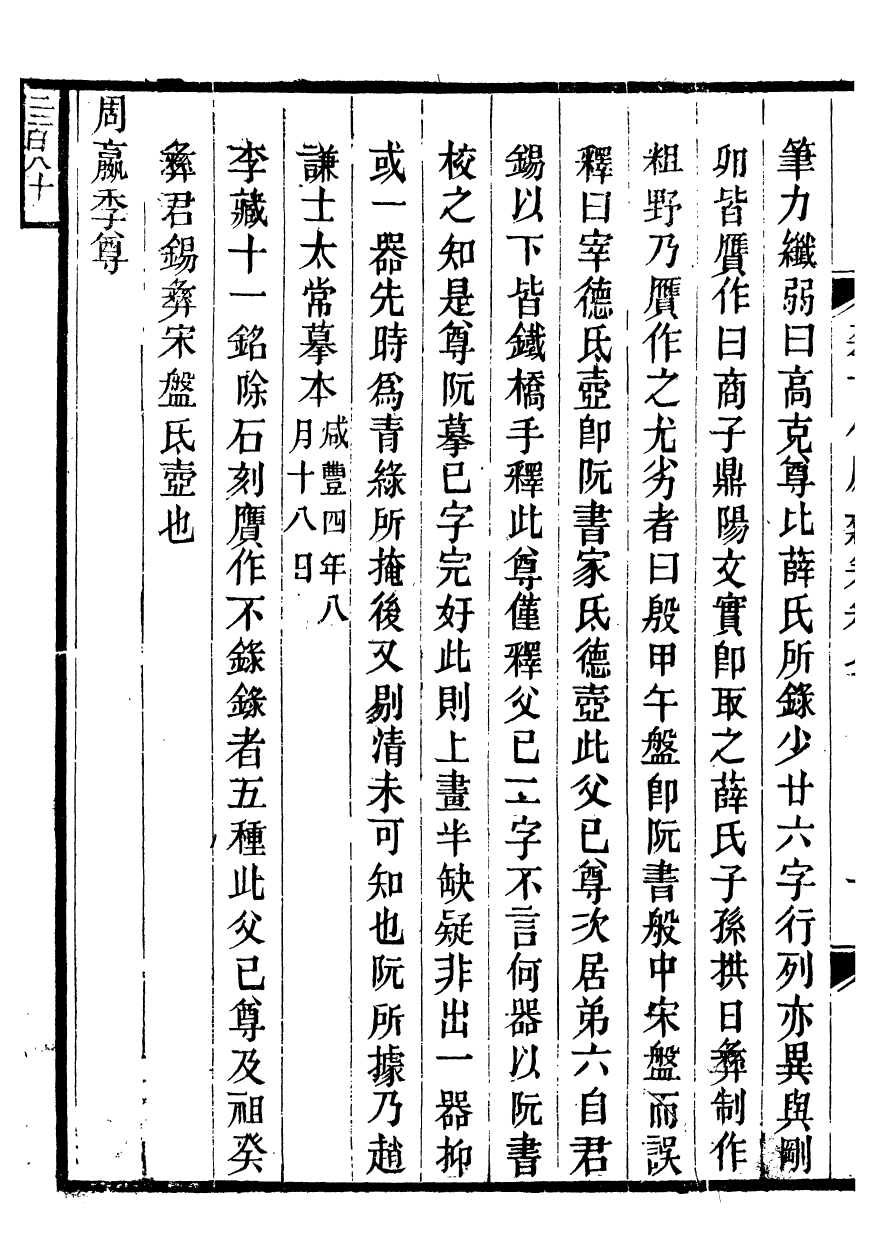 筆力纖弱曰高克尊比薛氏所錄少廿六字行列亦異與剛
卯皆贋作曰商子鼎陽文實卽取之薛氏子孫拱日彝制作
粗野乃贋作之尤劣者曰殷甲午盤卽阮書般中宋盤而誤
釋曰宰德氐壺卽阮書家氐德壺此父己尊次居弟六自君
錫以下皆鐵橋手釋此尊僅釋父己二字不言何器以阮書
校之知是尊阮摹己字完好此則上畫半缺疑非出一器抑
或一器先時爲青綠所掩後又剔清未可知也阮所據乃趙
謙士太常摹本咸豐四年八月十八日
李藏十一銘除石刻贋作不錄錄者五種此父己尊及祖癸
彝君錫彝宋盤氐壺也
周嬴季尊
二三百八十